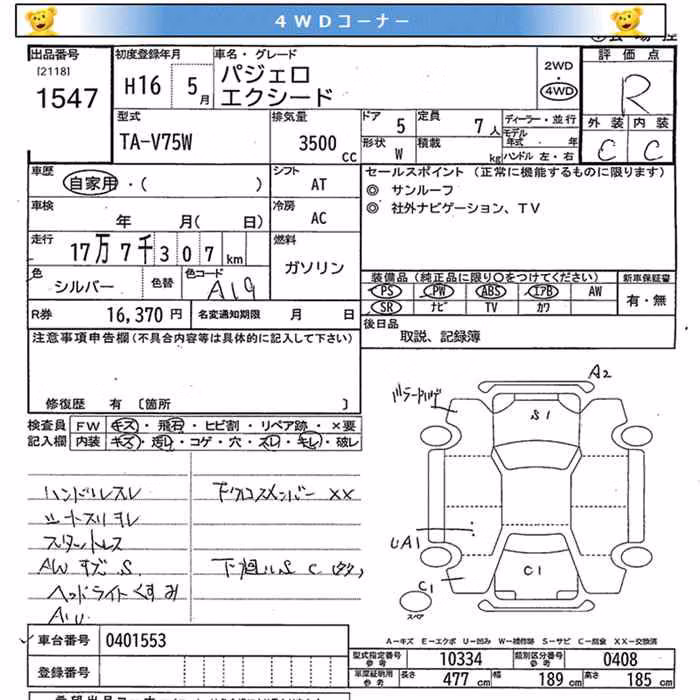 4WDコーナー
出品番号
[2118]
1547
初度登録年月
H16 5月
車名・グレード
パジェロ
エクシード
2WD
・
4WD
評価点
R
外装 内装
C C
型式
TA-V75W
排気量
3500
cc
ドア
5
定員
7人
形状
W
積載
kg
ディーラー・並行
モデル
年式 ・ 年
ハンドル 左・右
車歴
自家用・( )
シフト
AT
セールスポイント(正常に機能するものに限ります)
◎ サンルーフ
◎ 社外ナビゲーション、TV
車検
年 月( 日)
冷房
AC
走行
17万7千307km
燃料
ガソリン
色
シルバー
色替
色コード
A19
装備品(純正品に限り○をつけてください)
PS PW ABS エアB AW
SR ナビ TV カワ
新車保証書
有・無
R券
16,370 円
名変通知期限
月 日
後日品
取説、記録簿
注意事項申告欄(不具合内容等は具体的に記入して下さい)
修復歴 有 〔箇所 〕
検査員
記入欄
FW キズ・飛石・ヒビ割・リペア跡・×要
内装 キズ・汚レ・コゲ・穴・スレ・キレ・破レ
ハンドルスレ
AWキズ S
ヘッドライトくすみ
下クロスメンバー XX
A2
S1
UA1
C1
C1
スペア
A-キズ E-エクボ U-凹み W-補修跡 S-サビ C-腐食 XX-交換済
車台番号
0401553
登録番号
型式指定番号
参考
10334
類別区分番号
参考
0408
車庫証明用
参考
長さ 477 cm 幅 189 cm 高さ 185 cm